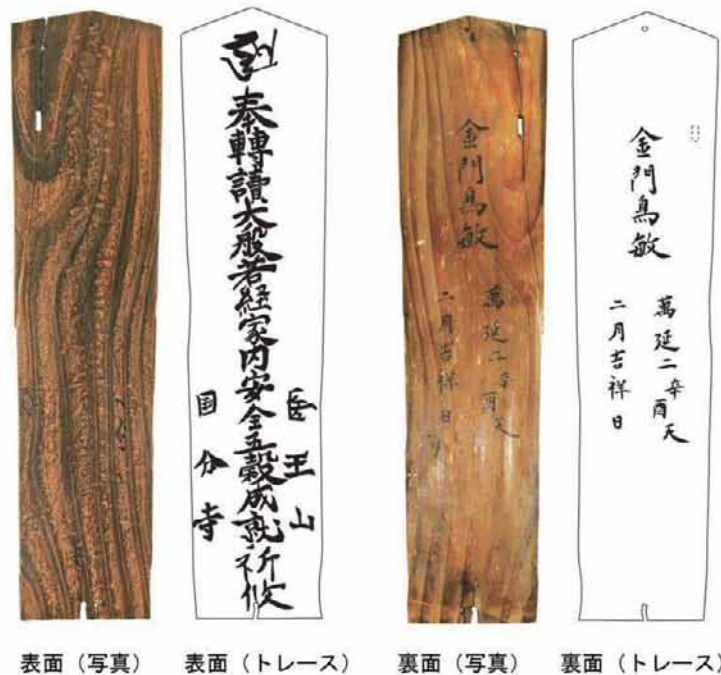 奉轉讀大般若経家内安全五穀成就祈攸
医王山
国分寺
金門鳥敏
萬延二辛酉天
二月吉祥日
金門鳥敏
萬延二辛酉天
二月吉祥日
表面（写真）
表面（トレース）
裏面（写真）
裏面（トレース）